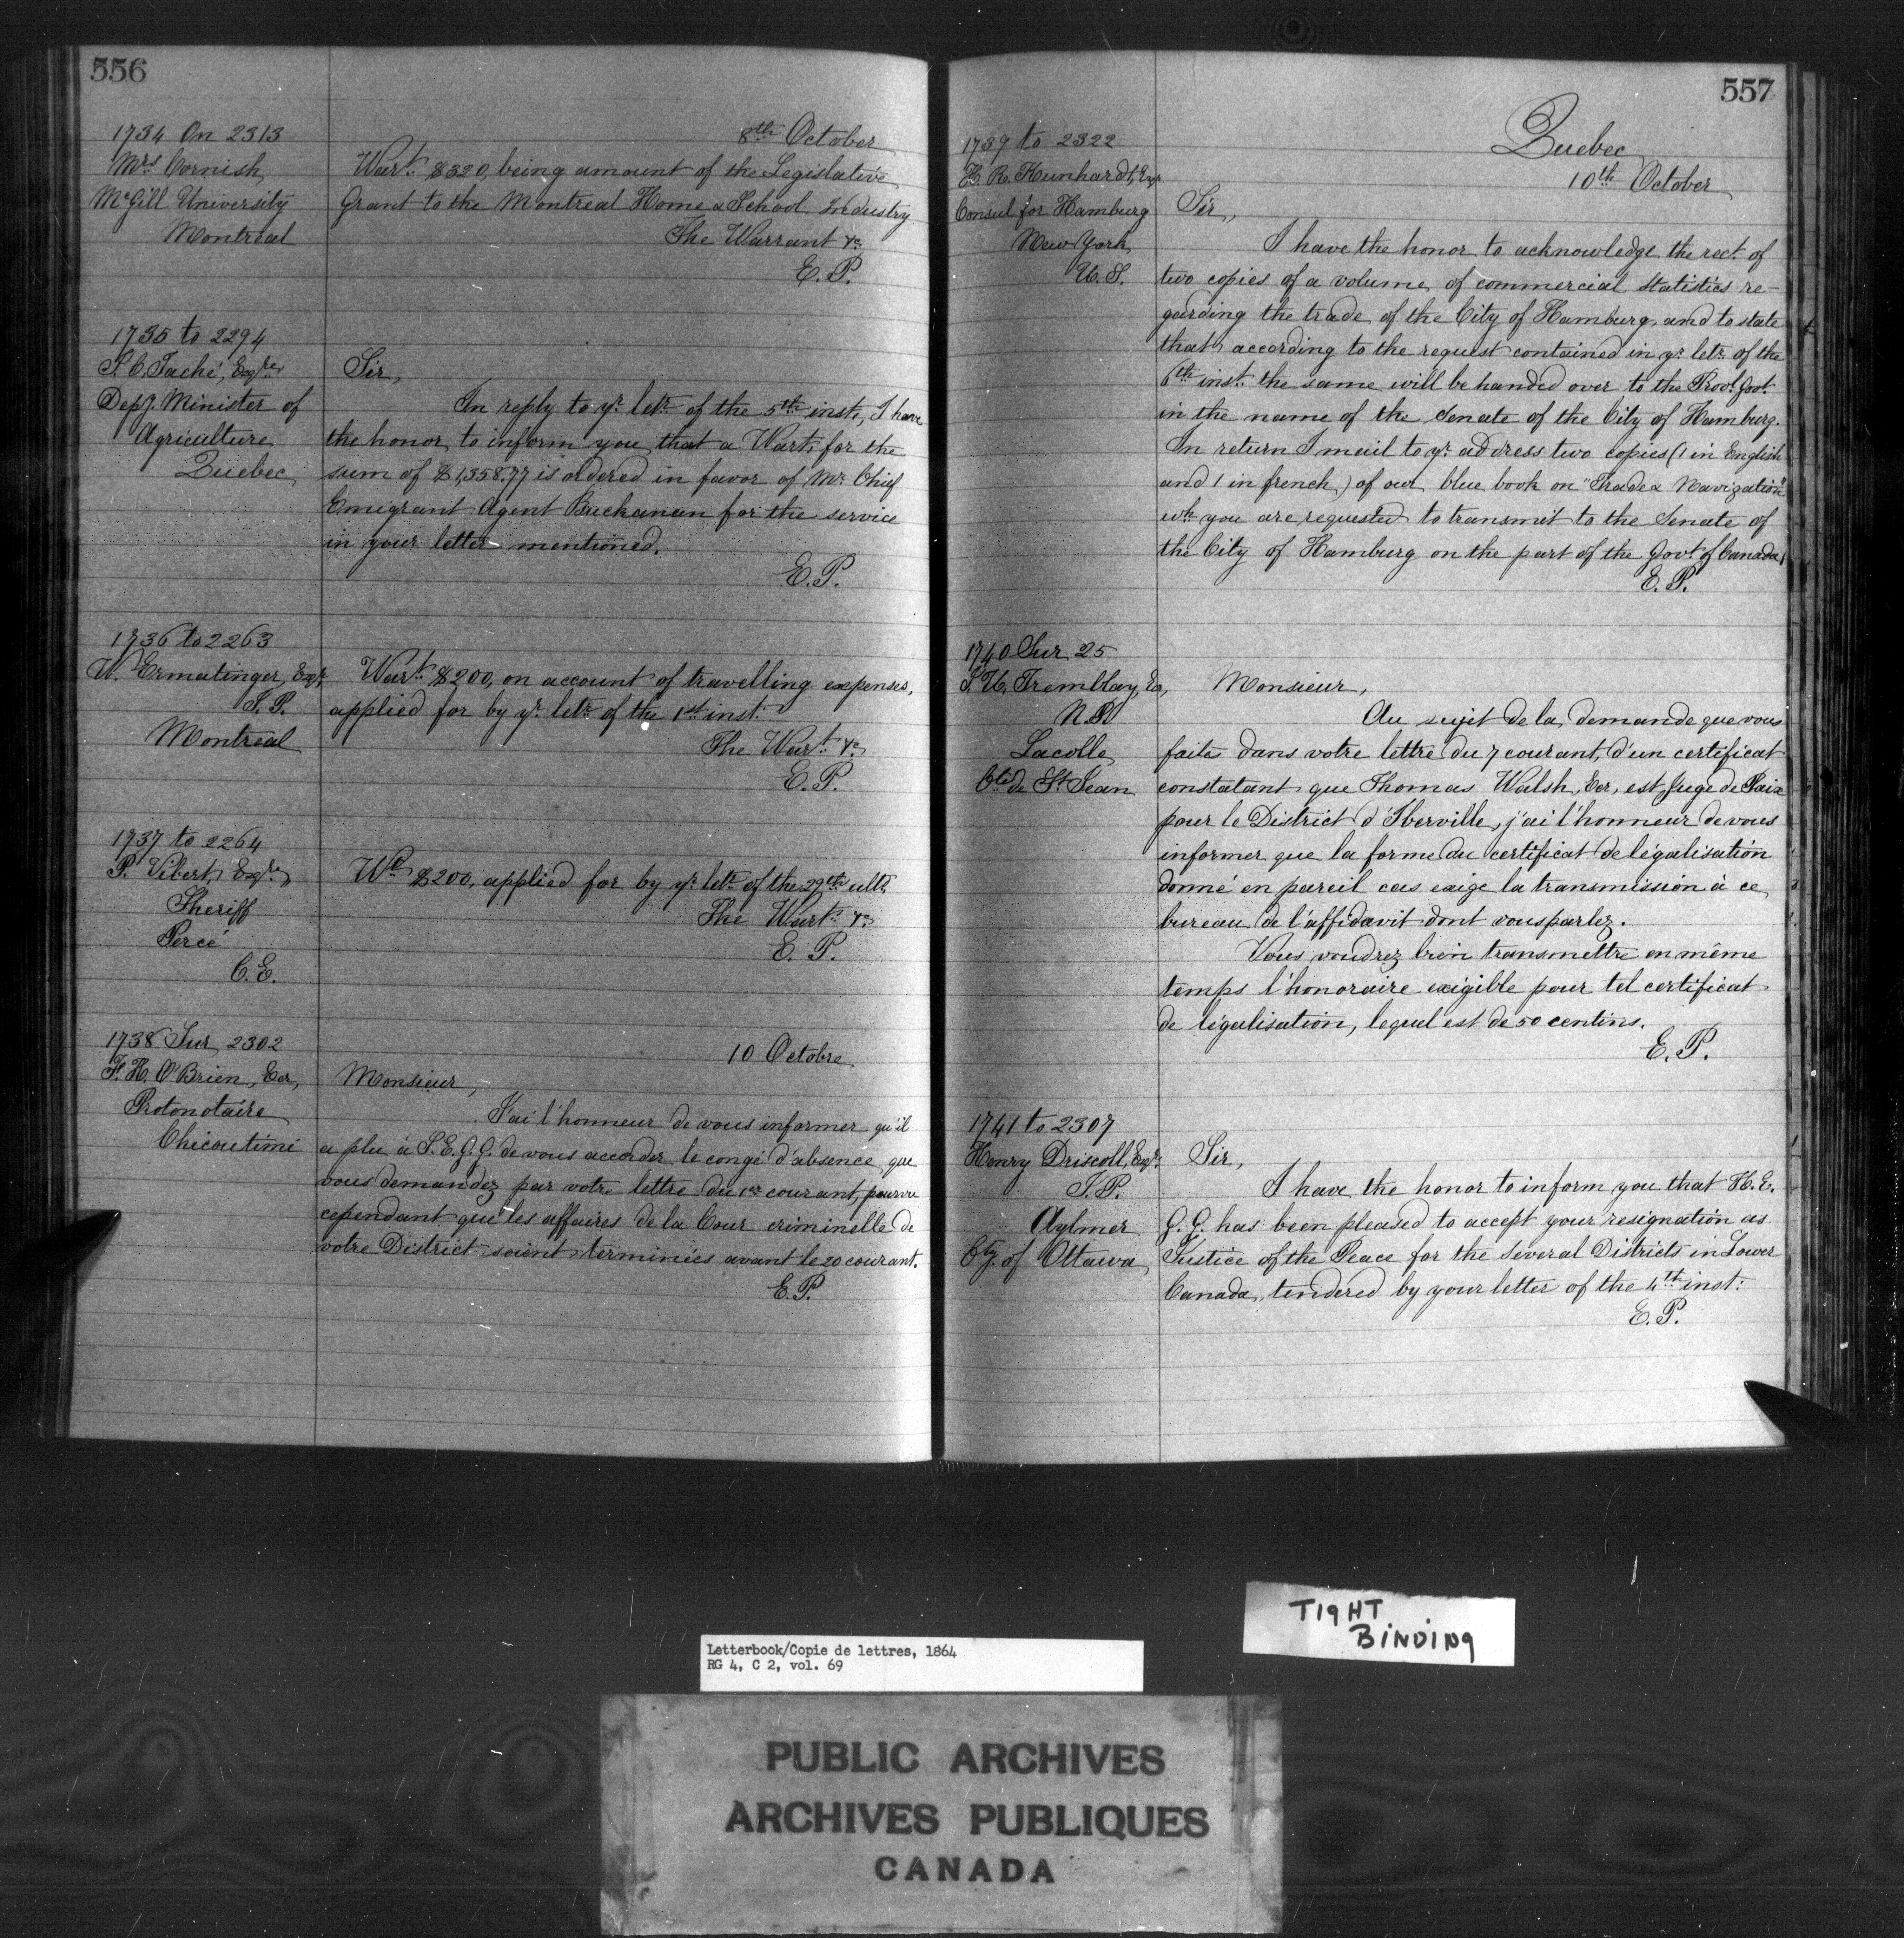 556
1734 On 2313
Mrs Cornish,
McGill University
Montreal
8th October
Wart. $320, being amount of the Legislative
Grant to the Montreal Home & School Industry
The Warrant &c
E.P.
1735 to 2294
J.C. Taché, Esqre
Depy. Minister of
Agriculture
Quebec
Sir,
In reply to yr. letr. of the 5th inst., I have
the honor to inform you that a Wart. for the
sum of $1,358.77 is ordered in favor of Mr. Chief
Emigrant Agent Buchanan for the service
in your letter mentioned.
E.P.
1736 to 2263
W. Ermatinger, Esqr.
S.P.
Montreal
Wart. $200, on account of travelling expenses,
applied for by yr. letr. of the 1st inst.
The Wart. &c
E.P.
1737 to 2264
P. Vibert, Esqre
Sheriff
Percé
C.E.
Wt. $200, applied for by yr. letr. of the 29th ulto.
The Wart. &c
E.P.
1738 Sur 2302
F.H. O'Brien, Ecr,
Protonotaire
Chicoutimi
10 Octobre
Monsieur,
J'ai l'honneur de vous informer qu'il
a plu à S.E.G.G. de vous accorder le congé d'absence que
vous demandez par votre lettre du 1er courant, pourvu
cependant que les affaires de la Cour criminelle de
votre District soient terminées avant le 20 courant.
E.P.
557
Quebec
10th October
1739 to 2322
H. R. Kunhardt, Esqr.
Consul for Hamburg
New York
U.S.
Sir,
I have the honor to acknowledge the rect. of
two copies of a volume of commercial statistics re-
garding the trade of the City of Hamburg, and to state
that according to the request contained in yr. letr. of the
6th inst. the same will be handed over to the Provl Govt.
in the name of the Senate of the City of Hamburg.
In return I mail to yr. address two copies (1 in English
and 1 in french) of our blue book on "Trade & Navigation"
wh. you are requested to transmit to the Senate of
the City of Hamburg on the part of the Govt. of Canada.
E.P.
1740 Sur 25
Tremblay, Ecr,
N.P.
Lacolle
Cté de St. Jean
Monsieur,
Au sujet de la demande que vous
faite dans votre lettre du 7 courant, d'un certificat
constatant que Thomas Walsh, Ecr, est Juge de Paix
pour le District d'Iberville, j'ai l'honneur de vous
informer que la forme du certificat de légalisation
donné en pareil cas exige la transmission à ce
bureau de l'affidavit dont vous parlez.
Vous voudrez bien transmettre en même
temps l'honoraire exigible pour tel certificat
de légalisation, lequel est de 50 centins.
E.P.
1741 to 2307
Henry Driscoll, Esqr.
J.P.
Aylmer
Cty. of Ottawa
Sir,
I have the honor to inform you that H.E.
G.G. has been pleased to accept your resignation as
Justice of the Peace for the several Districts in Lower
Canada, tendered by your letter of the 4th inst:
E.P.
TIGHT
BINDING
Letterbook/Copie de lettres, 1864
RG 4, C 2, vol. 69
PUBLIC ARCHIVES
ARCHIVES PUBLIQUES
CANADA